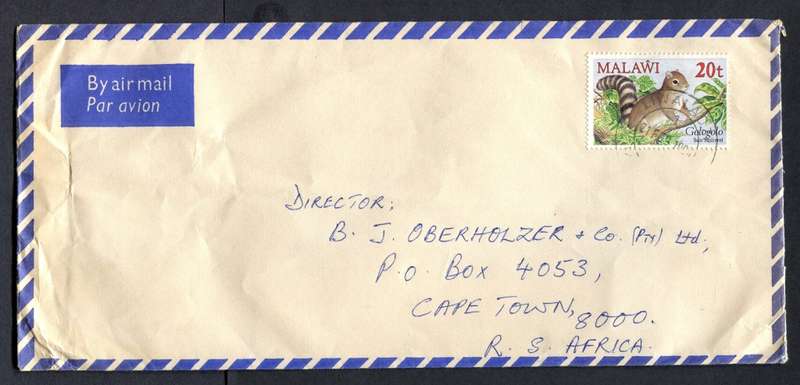 By air mail
Par avion
MALAŴI 20t
Gologolo
Sun Squirrel
DIRECTOR;
B. J. OBERHOLZER & Co. (Pty) Ltd;
P.O. BOX 4053,
CAPE TOWN,
8000.
R. S. AFRICA.